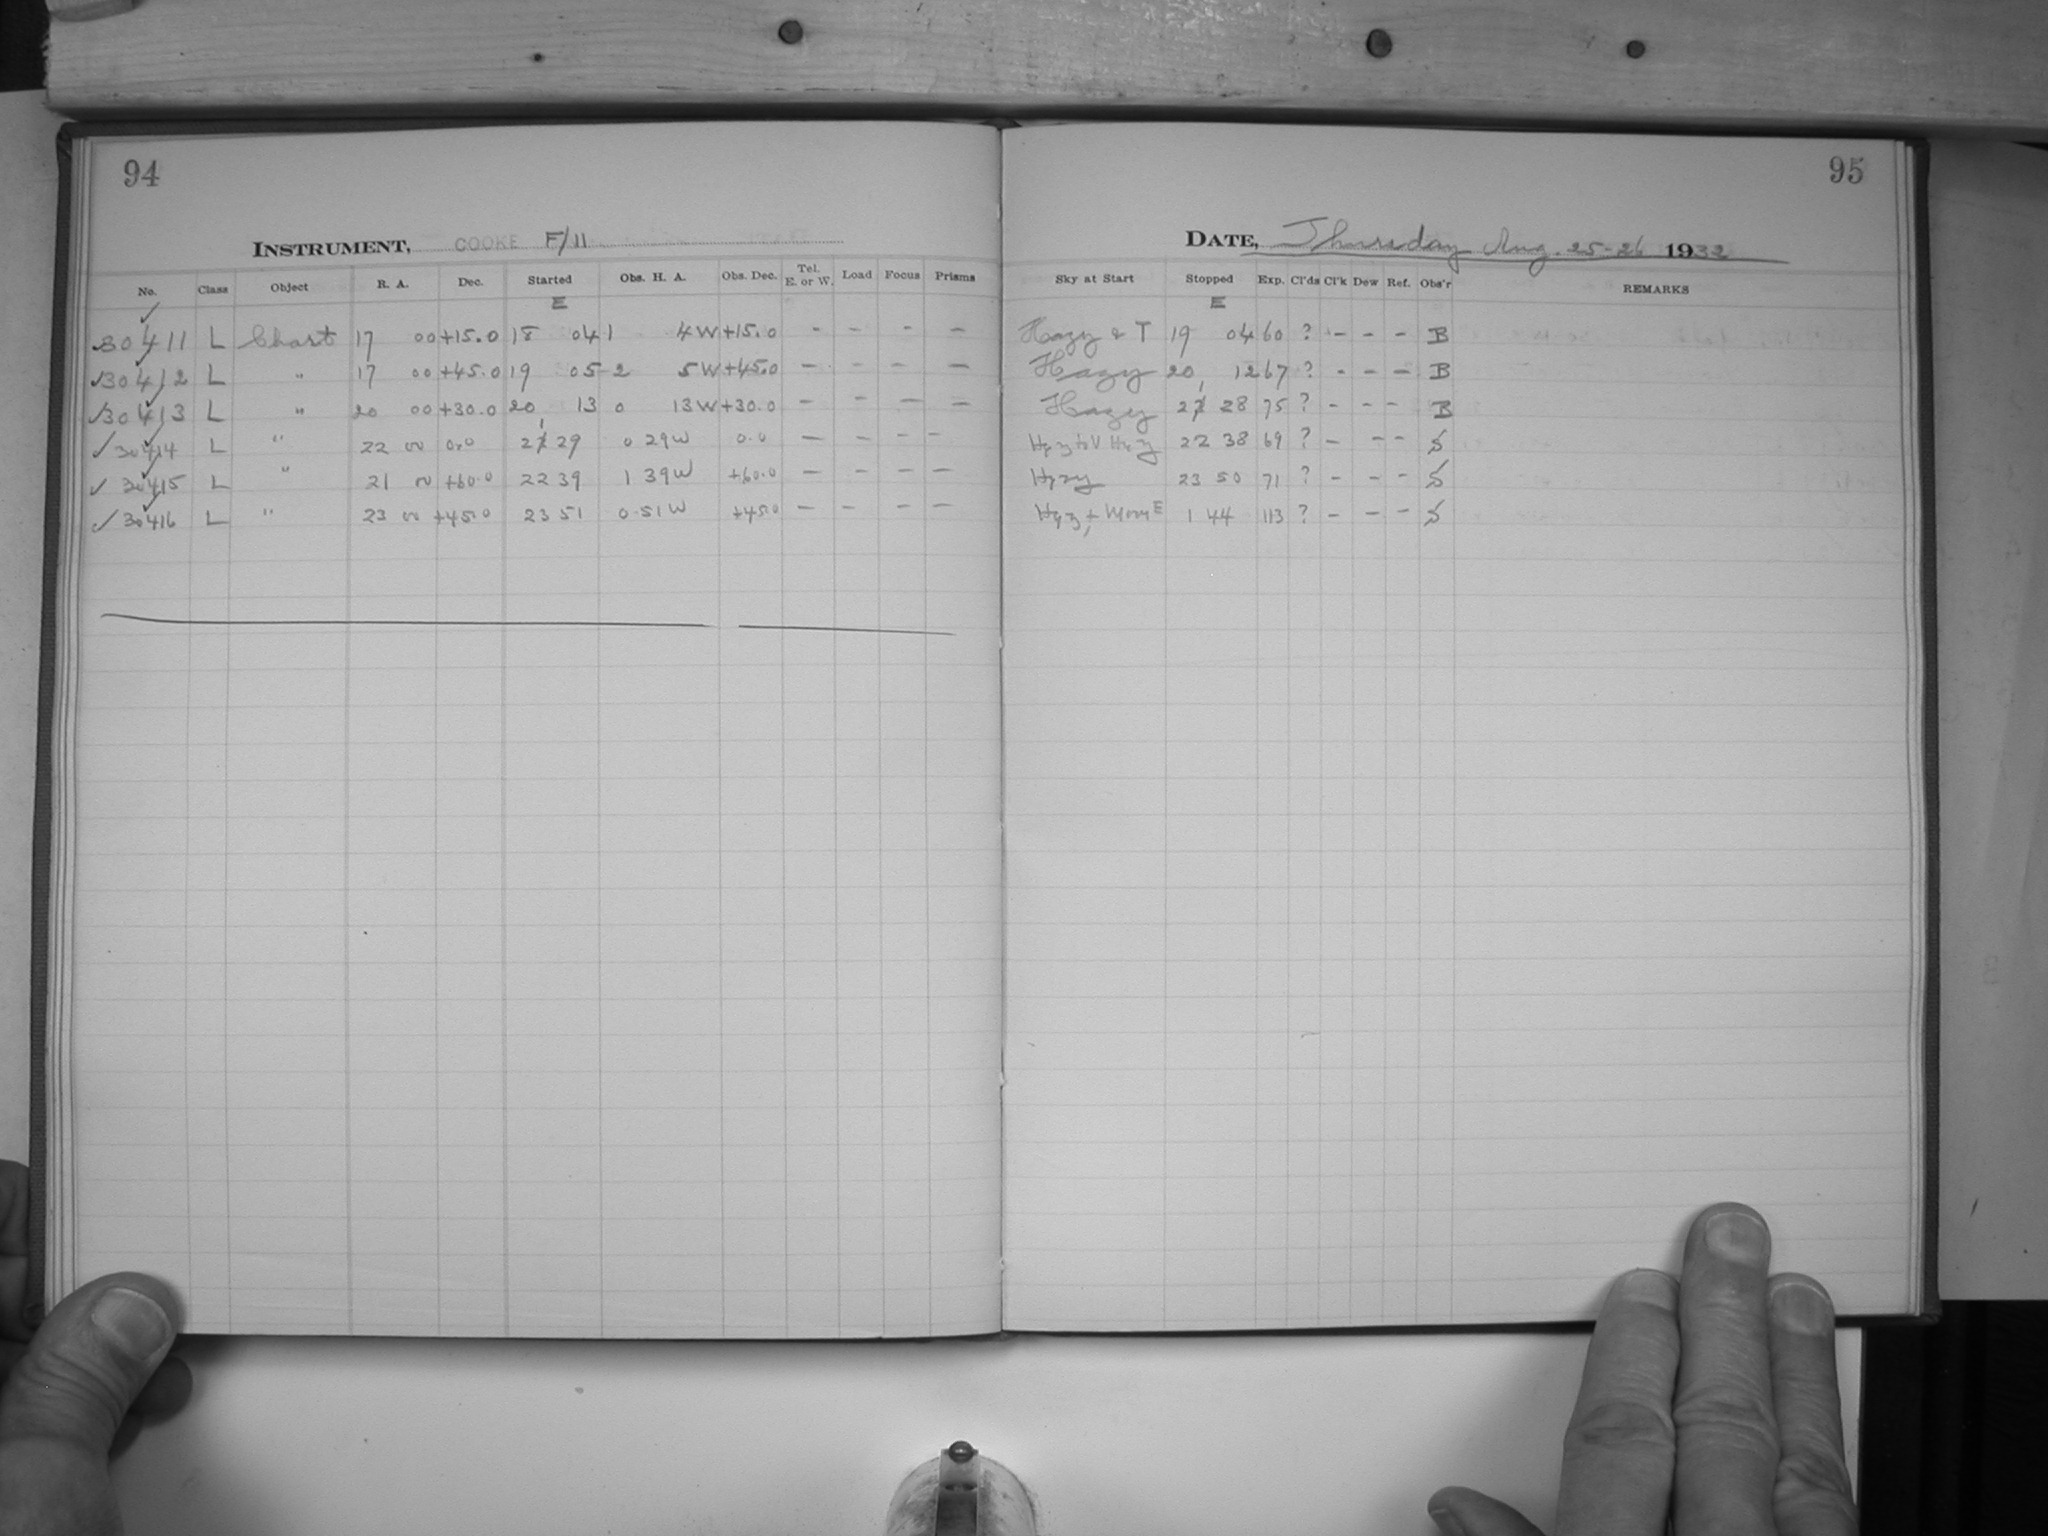 94
INSTRUMENT, COOKE F/11
No. Class Object R. A. Dec. Started Obs. H. A. Obs. Dec. Tel. E. or W. Load Focus Prisms
E
30411 L Chart 17 00 +15.0 18 04 1 4W +15.0 - - - -
30412 L " 17 00 +45.0 19 05 2 5W +45.0 - - - -
30413 L " 20 00 +30.0 20 13 0 13W +30.0 - - - -
30414 L " 22 00 0.0 21 29 0 29W 0.0 - - - -
30415 L " 21 00 +60.0 22 39 1 39W +60.0 - - - -
30416 L " 23 00 +45.0 23 51 0 51W +45.0 - - - -
95
DATE, Thursday Aug. 25-26 1932
Sky at Start Stopped Exp. Cl'ds Cl'k Dew Ref. Obs'r REMARKS
E
Hazy & T 19 04 60 ? - - - B
Hazy 20 12 67 ? - - - B
Hazy 21 28 75 ? - - - B
Hazy to V Hazy 22 38 69 ? - - - S
Hazy 23 50 71 ? - - - S
Hazy + Moon E 1 44 113 ? - - - S